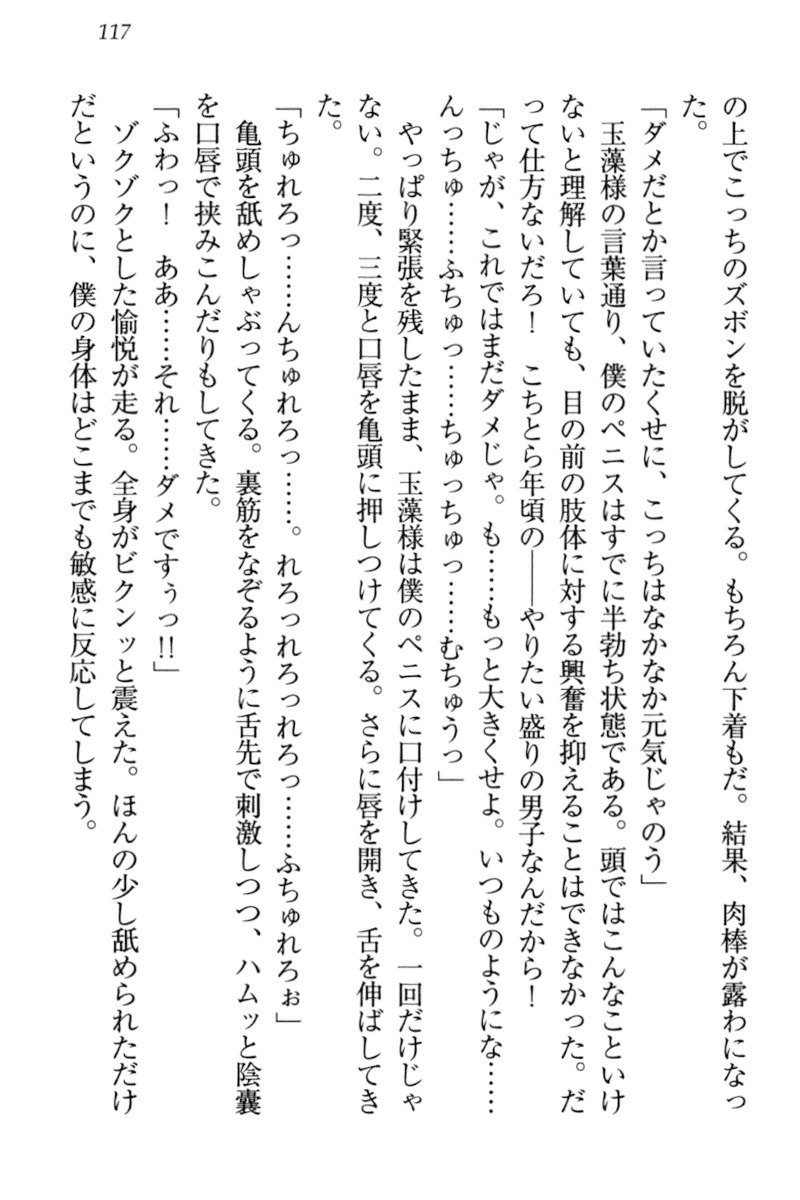 117
の上でこっちのズボンを脱がしてくる。もちろん下着もだ。結果、肉棒が露わになっ
た。
「ダメだとか言っていたくせに、こっちはなかなか元気じゃのう」
玉藻様の言葉通り、僕のペニスはすでに半勃ち状態である。頭ではこんなこといけ
ないと理解していても、目の前の肢体に対する興奮を抑えることはできなかった。だ
って仕方ないだろ！　こちとら年頃の――やりたい盛りの男子なんだから！
「じゃが、これではまだダメじゃ。も……もっと大きくせよ。いつものようにな……
んっちゅ……ふちゅっ……ちゅっちゅっ……むちゅうっ」
やっぱり緊張を残したまま、玉藻様は僕のペニスに口付けしてきた。一回だけじゃ
ない。二度、三度と口唇を亀頭に押しつけてくる。さらに唇を開き、舌を伸ばしてき
た。
「ちゅれろっ……んちゅれろっ……。れろっれろっれろっ……ふちゅれろぉ」
亀頭を舐めしゃぶってくる。裏筋をなぞるように舌先で刺激しつつ、ハムッと陰嚢
を口唇で挟みこんだりもしてきた。
「ふわっ！　ああ……それ……ダメですぅっ!!」
ゾクゾクとした愉悦が走る。全身がビクンッと震えた。ほんの少し舐められただけ
だというのに、僕の身体はどこまでも敏感に反応してしまう。